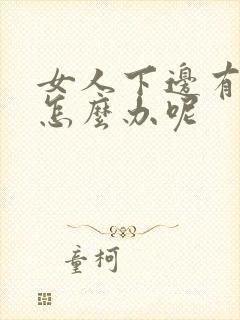 女人下邊有
怎麼办呢
童柯